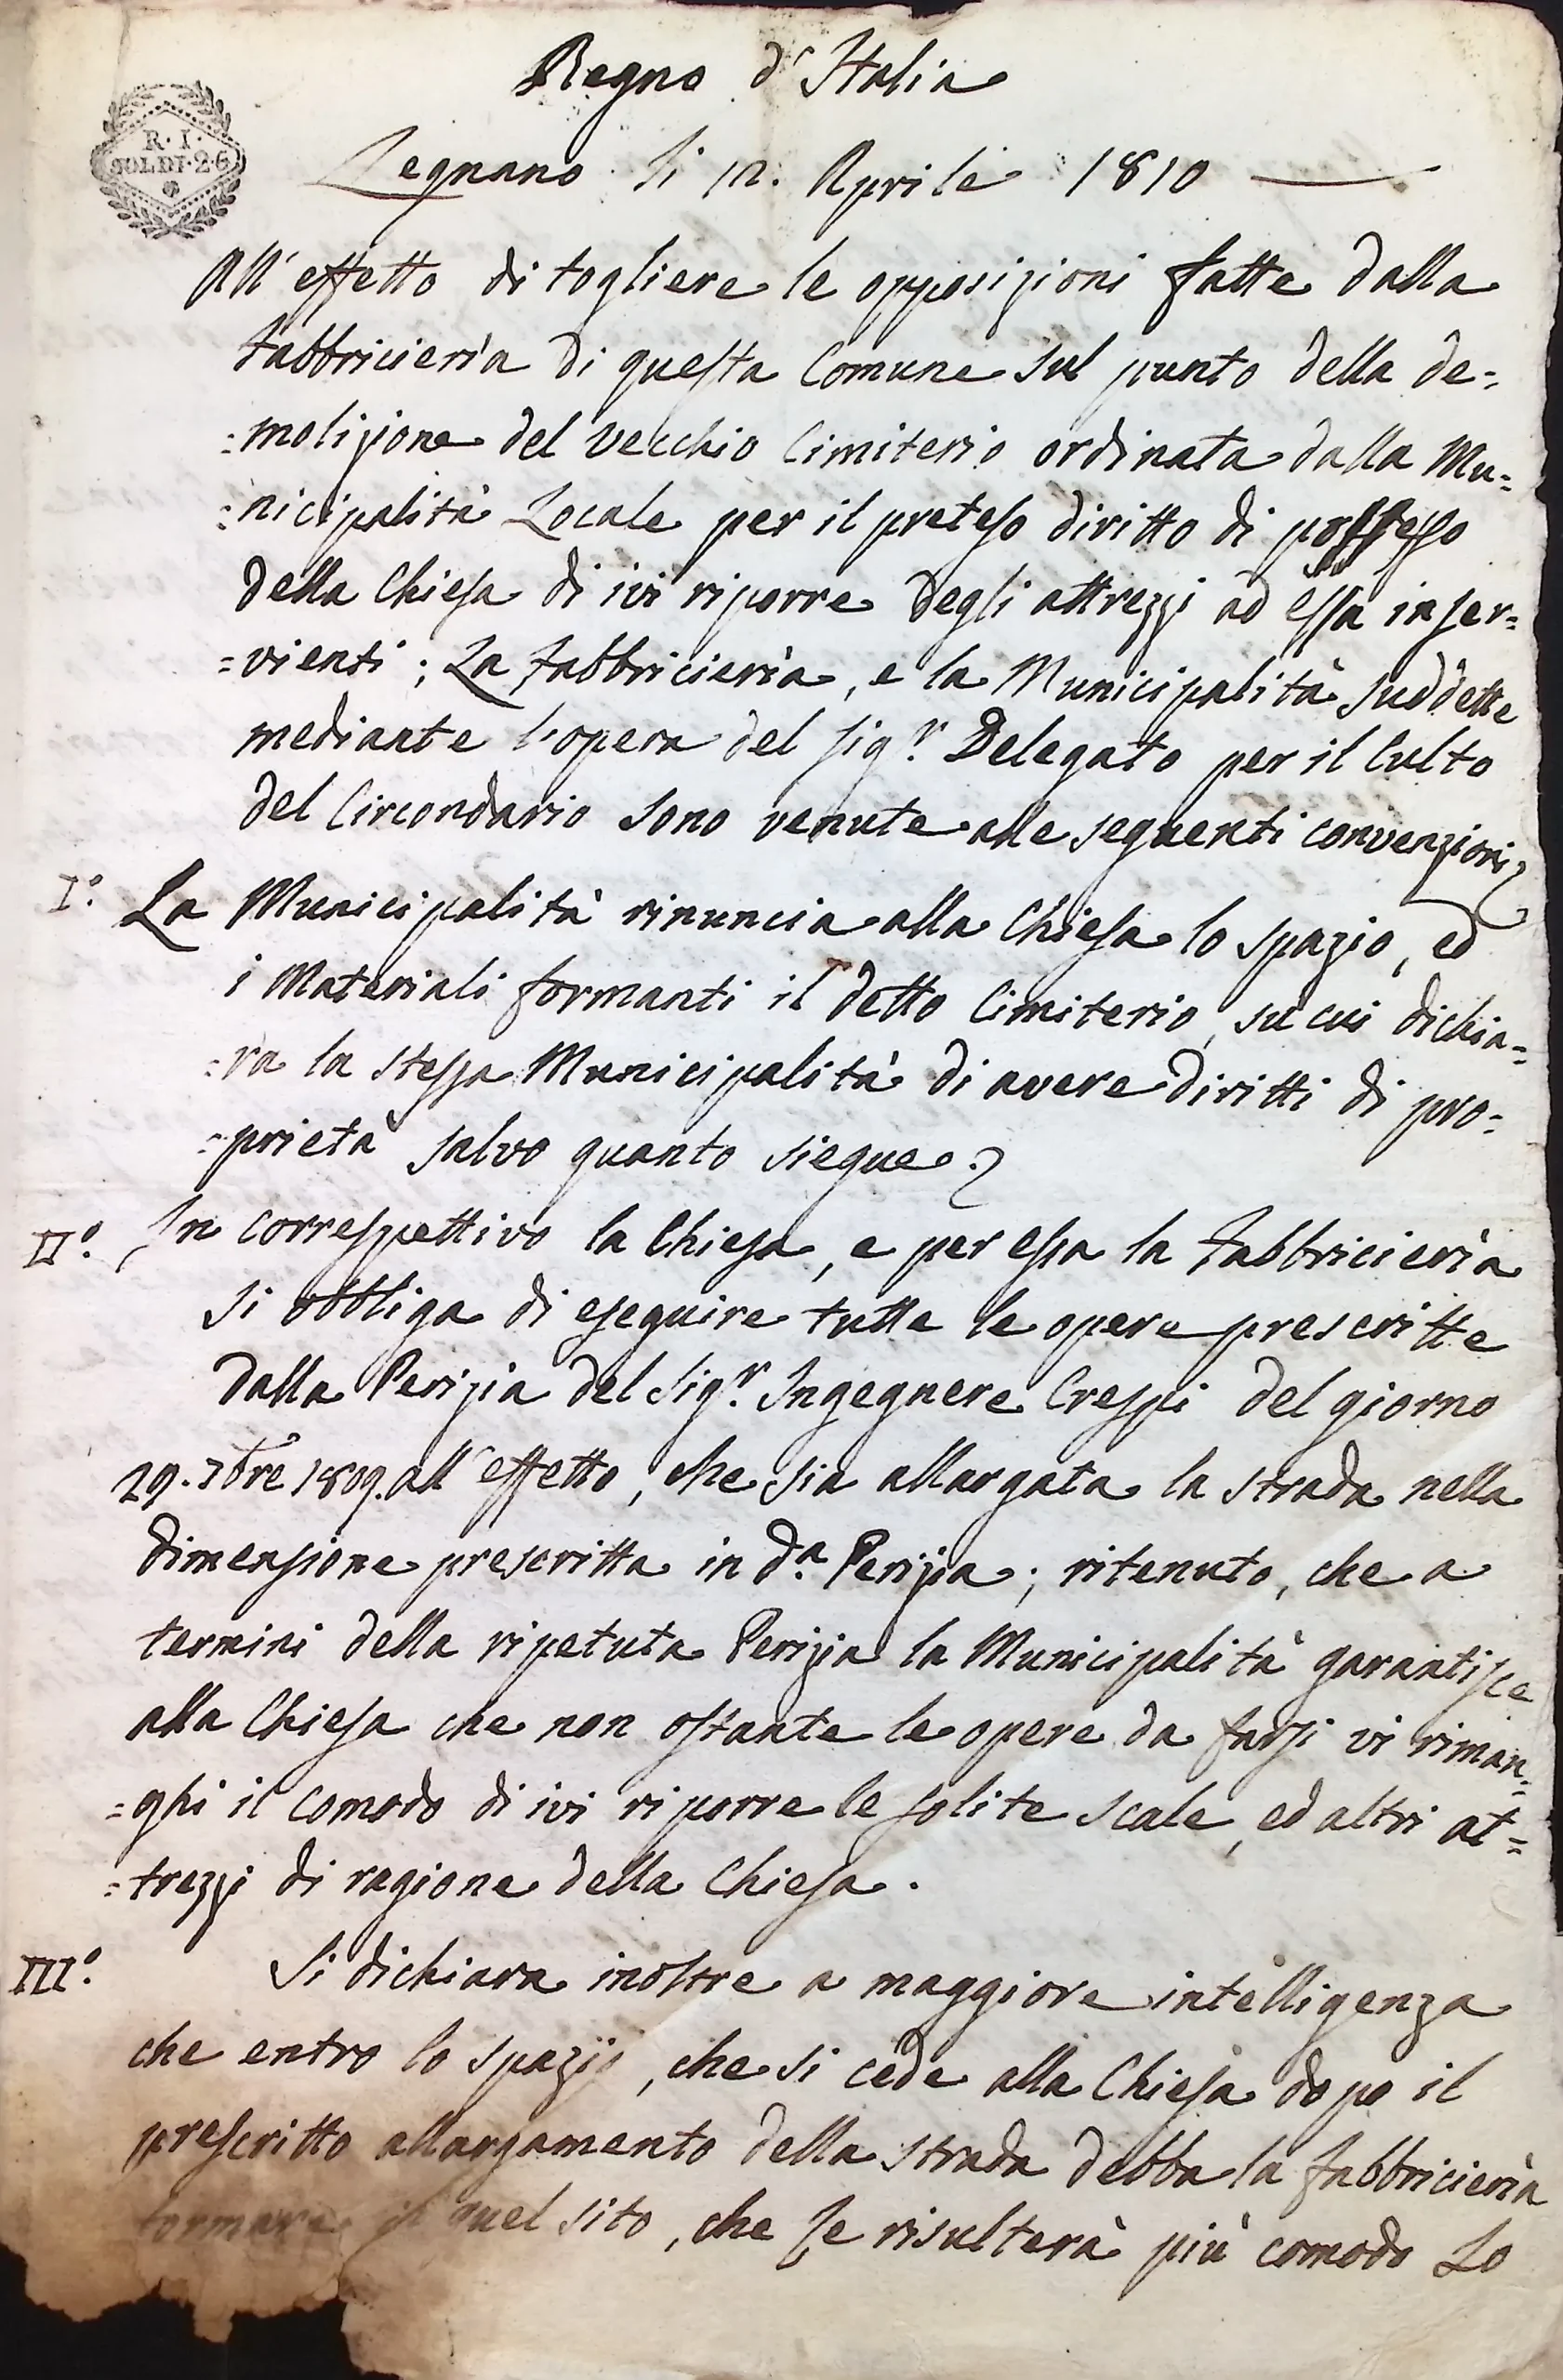 Regno d'Italia
R. I.
SOLDI. 2. 6
Legnano li 12. Aprile 1810
All'effetto di togliere le opposizioni fatte dalla
Fabbricierìa di questa Comune sul punto della de=
=molizione del vecchio Cimiterio ordinata dalla Mu=
=nicipalità Locale per il preteso diritto di possesso
della Chiesa di ivi riporre degli attrezzi ad essa inser=
=vienti; La Fabbricierìa, e la Municipalità suddette
mediante l'opera del Sigr. Delegato per il Culto
del Circondario sono venute alle seguenti convenzioni
I°. La Municipalità rinuncia alla Chiesa lo spazio, ed
i Materiali formanti il detto Cimiterio, su cui dichia=
=ra la stessa Municipalità di avere diritti di pro=
=prietà salvo quanto siegue.
II°. In correspettivo la Chiesa, e per essa la Fabbricierìa
si obbliga di eseguire tutte le opere prescritte
dalla Perizia del Sigr. Ingegnere Crespi del giorno
29. 7bre 1809. all'effetto, che sia allargata la strada nella
dimensione prescritta in da. Perizia; ritenuto, che a
termini della ripetuta Perizia la Municipalità garantisce
alla Chiesa che non ostante le opere da farsi vi riman=
=ghi il comodo di ivi riporre le solite scale, ed altri at=
=trezzi di ragione della Chiesa.
III°. Si dichiara inoltre a maggiore intelligenza
che entro lo spazio, che si cede alla Chiesa dopo il
prescritto allargamento della strada debba la fabbricierìa
formare in quel sito, che le risulterà più comodo Lo